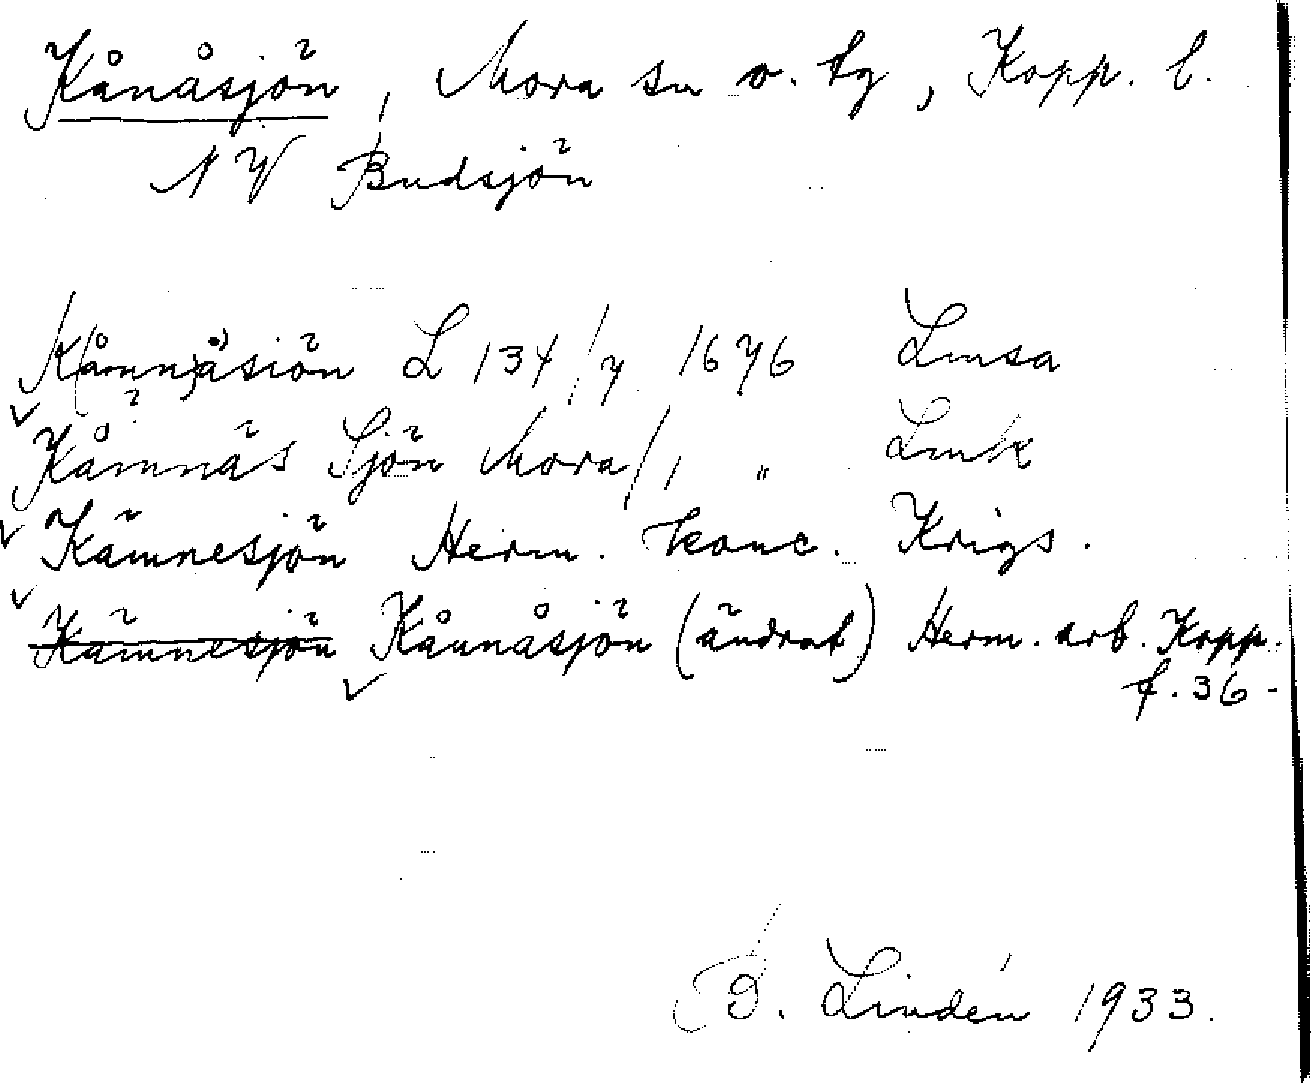 Kånåsjön, Mora sn o. tg, Kopp. l.
NV Budsjön
K(åmn)åsiön L 134/7 1676 Lmsa
Kåmnäs Sjön Mora/, " Lmk
Kämnesjön Herm. konc. Krigs.
Kämnesjön Kånnåsjön (ändrat) Herm. arb. Kopp.
f. 36 -
B. Lindén 1933.